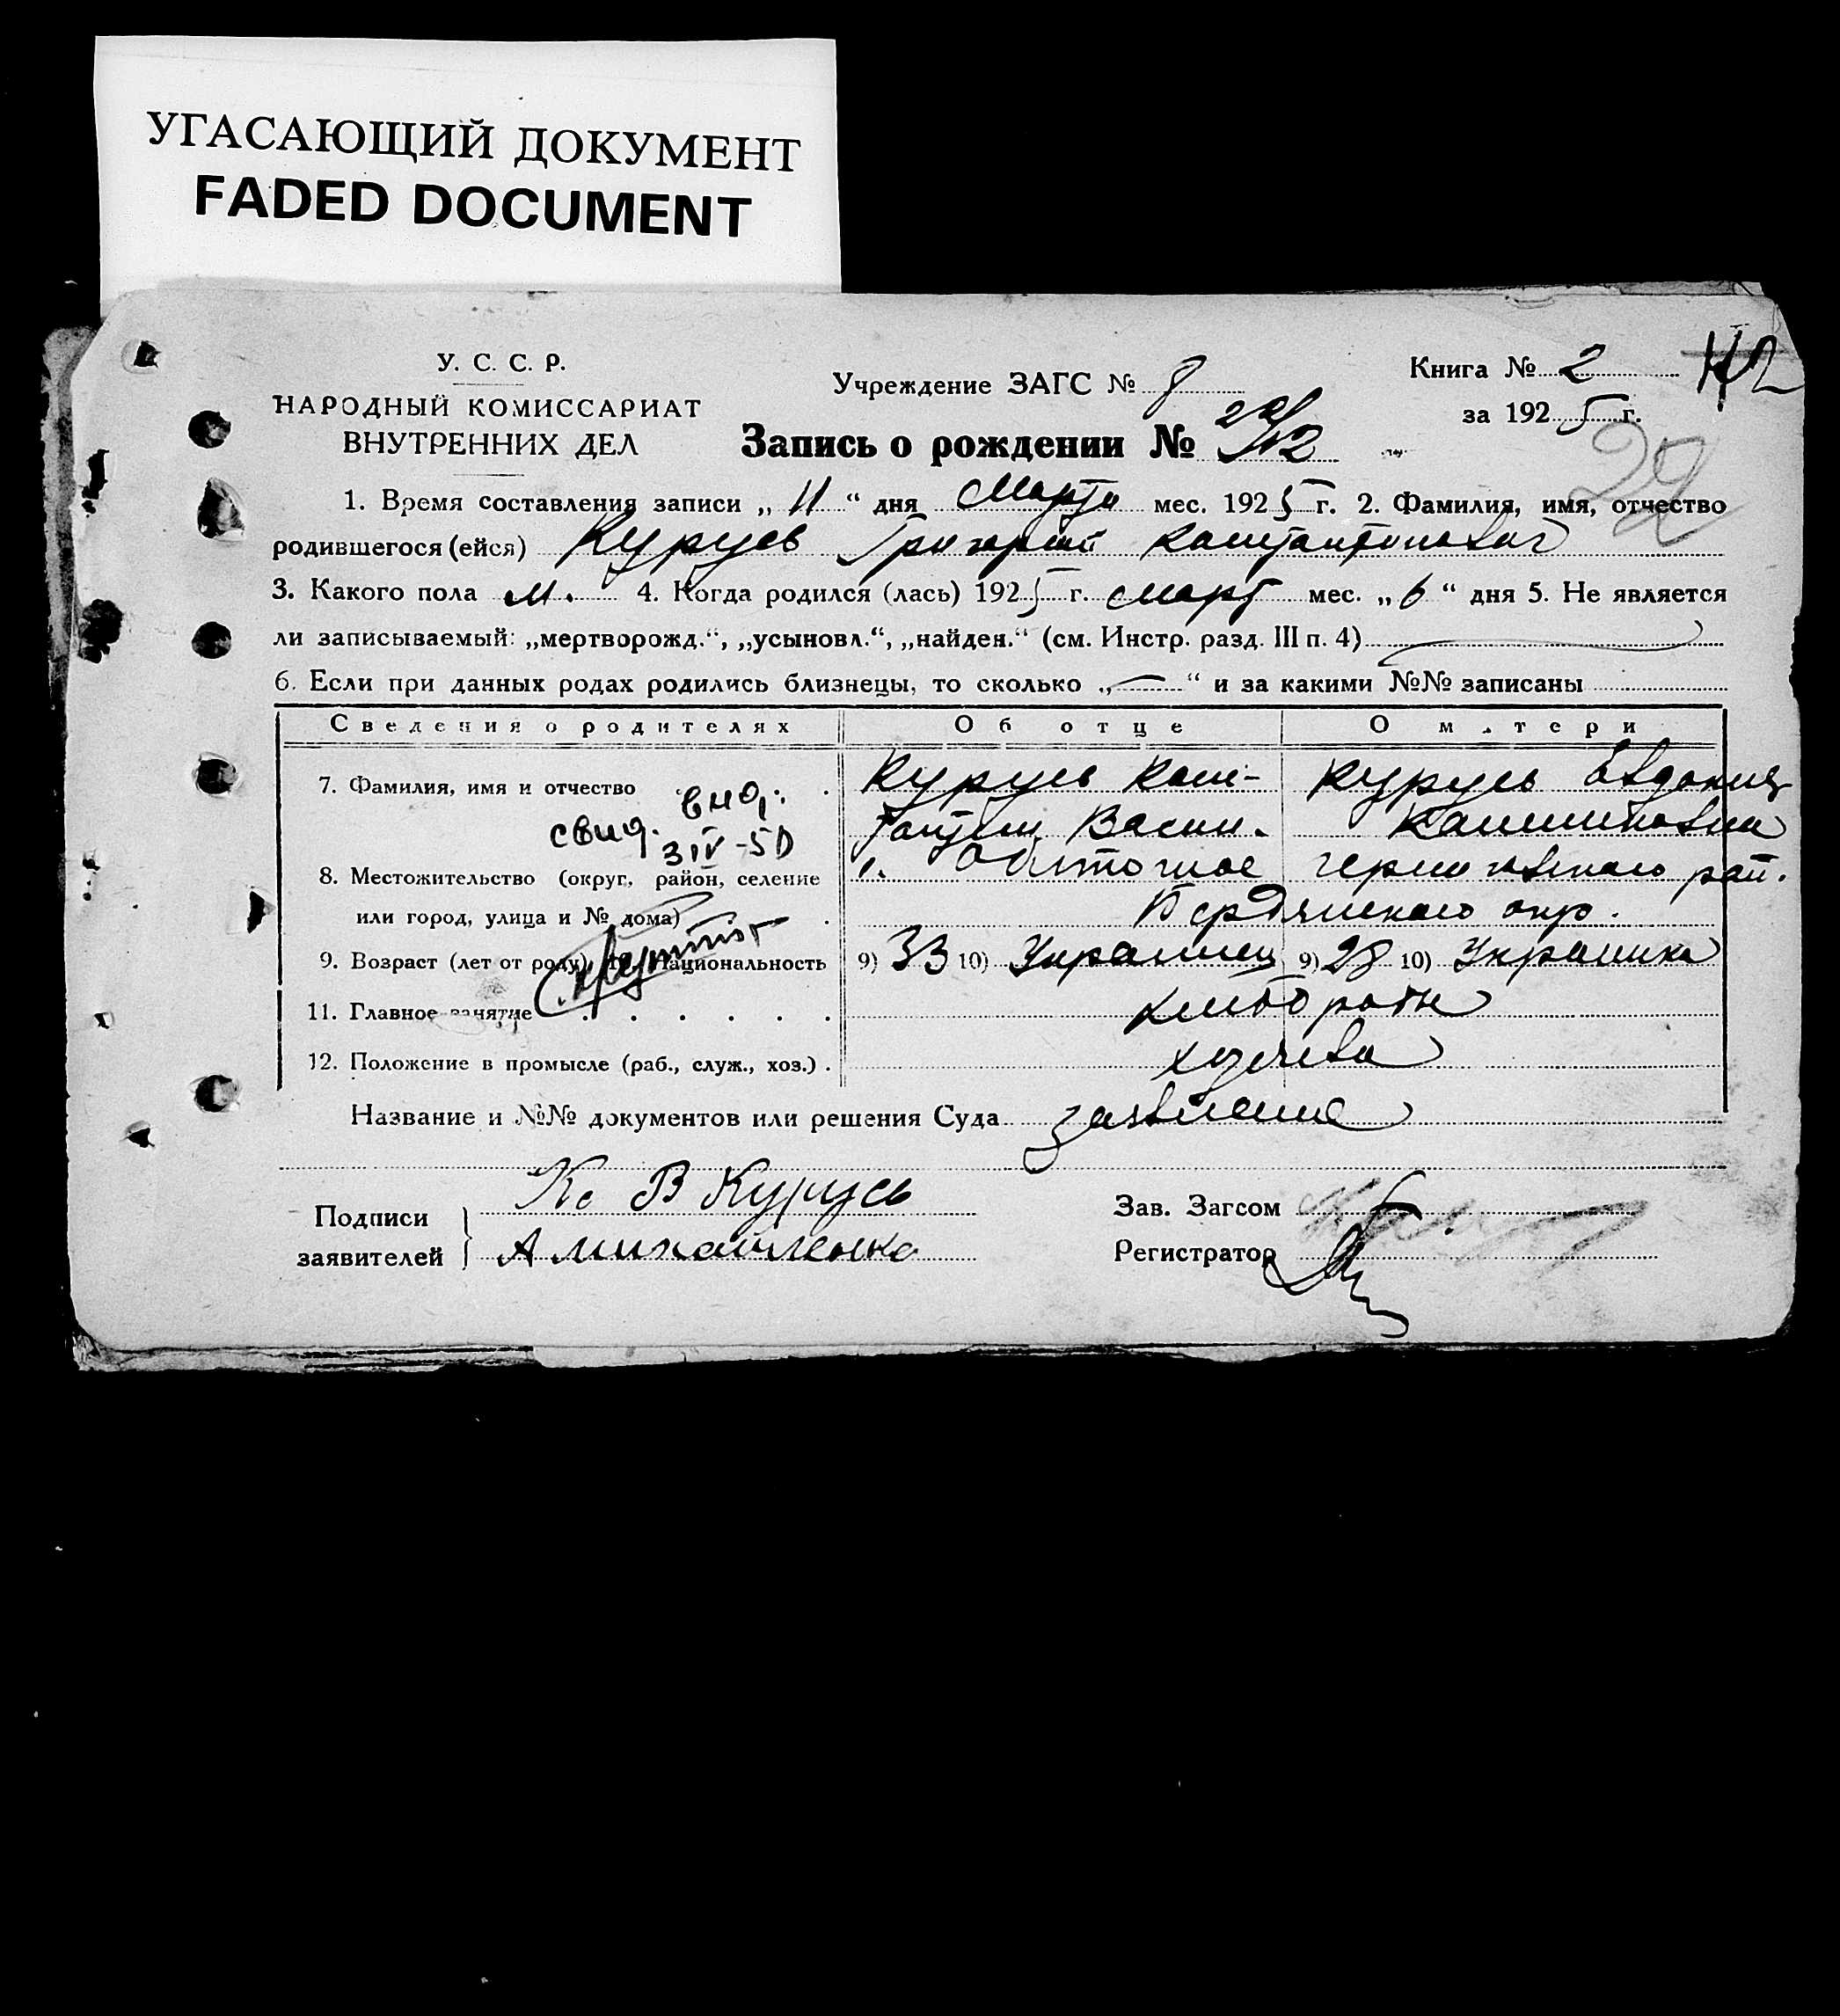 УГАСАЮЩИЙ ДОКУМЕНТ
FADED DOCUMENT
У. С. С. Р.
НАРОДНЫЙ КОМИССАРИАТ
ВНУТРЕННИХ ДЕЛ
Учреждение ЗАГС № 8
Книга № 2
за 1925 г.
Запись о рождении №
29
1. Время составления записи „11“ дня Марта мес. 1925 г. 2. Фамилия, имя, отчество
родившегося (ейся) Курусь Григорий Константинович
3. Какого пола м. 4. Когда родился (лась) 1925 г. март мес. „6“ дня 5. Не является
ли записываемый: „мертворожд.“, „усыновл.“, „найден.“ (см. Инстр. разд. III п. 4)
6. Если при данных родах родились близнецы, то сколько „—“ и за какими №№ записаны
Сведения о родителях Об отце О матери
7. Фамилия, имя и отчество Курусь Кон- Курусь Евдокия
стантин Васил.
свид. 3 IV-50
8. Местожительство (округ, район, селение с. Обиточное черниговского рай.
или город, улица и № дома) Бердянского окр.
9. Возраст (лет от роду) 10. Национальность 9) 33 10) Украинец 9) 28 10) Украинка
11. Главное занятие хлебороб
12. Положение в промысле (раб., служ., хоз.) хозяева
Название и №№ документов или решения Суда заявление
Подписи заявителей
В Курусь
А Михайленко
Зав. Загсом
Регистратор